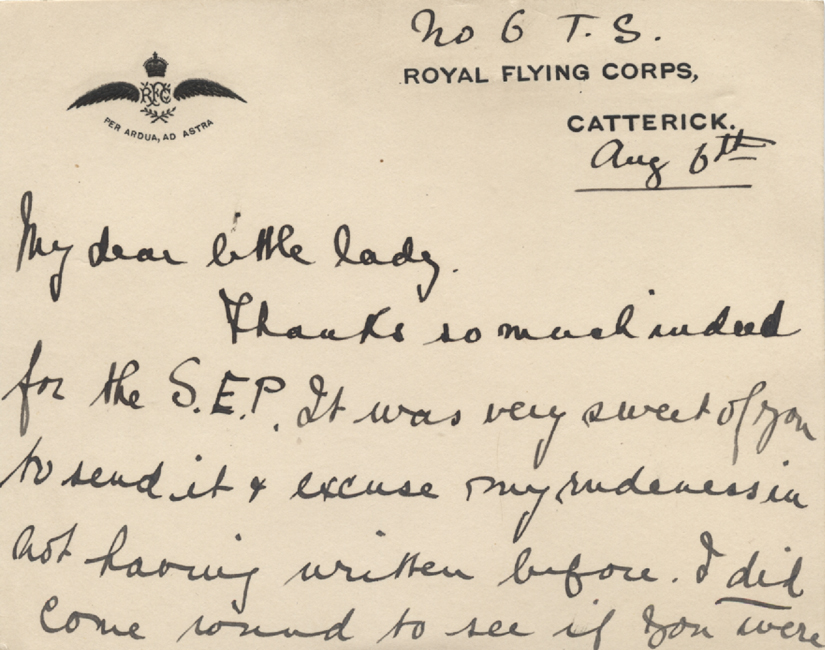 No 6 T. S.
ROYAL FLYING CORPS,
CATTERICK.
Aug 6th
RFC
PER ARDUA, AD ASTRA
My dear little lady.
Thanks so much indeed
for the S.E.P. It was very sweet of you
to send it & excuse my rudeness in
not having written before. I did
come round to see if you were